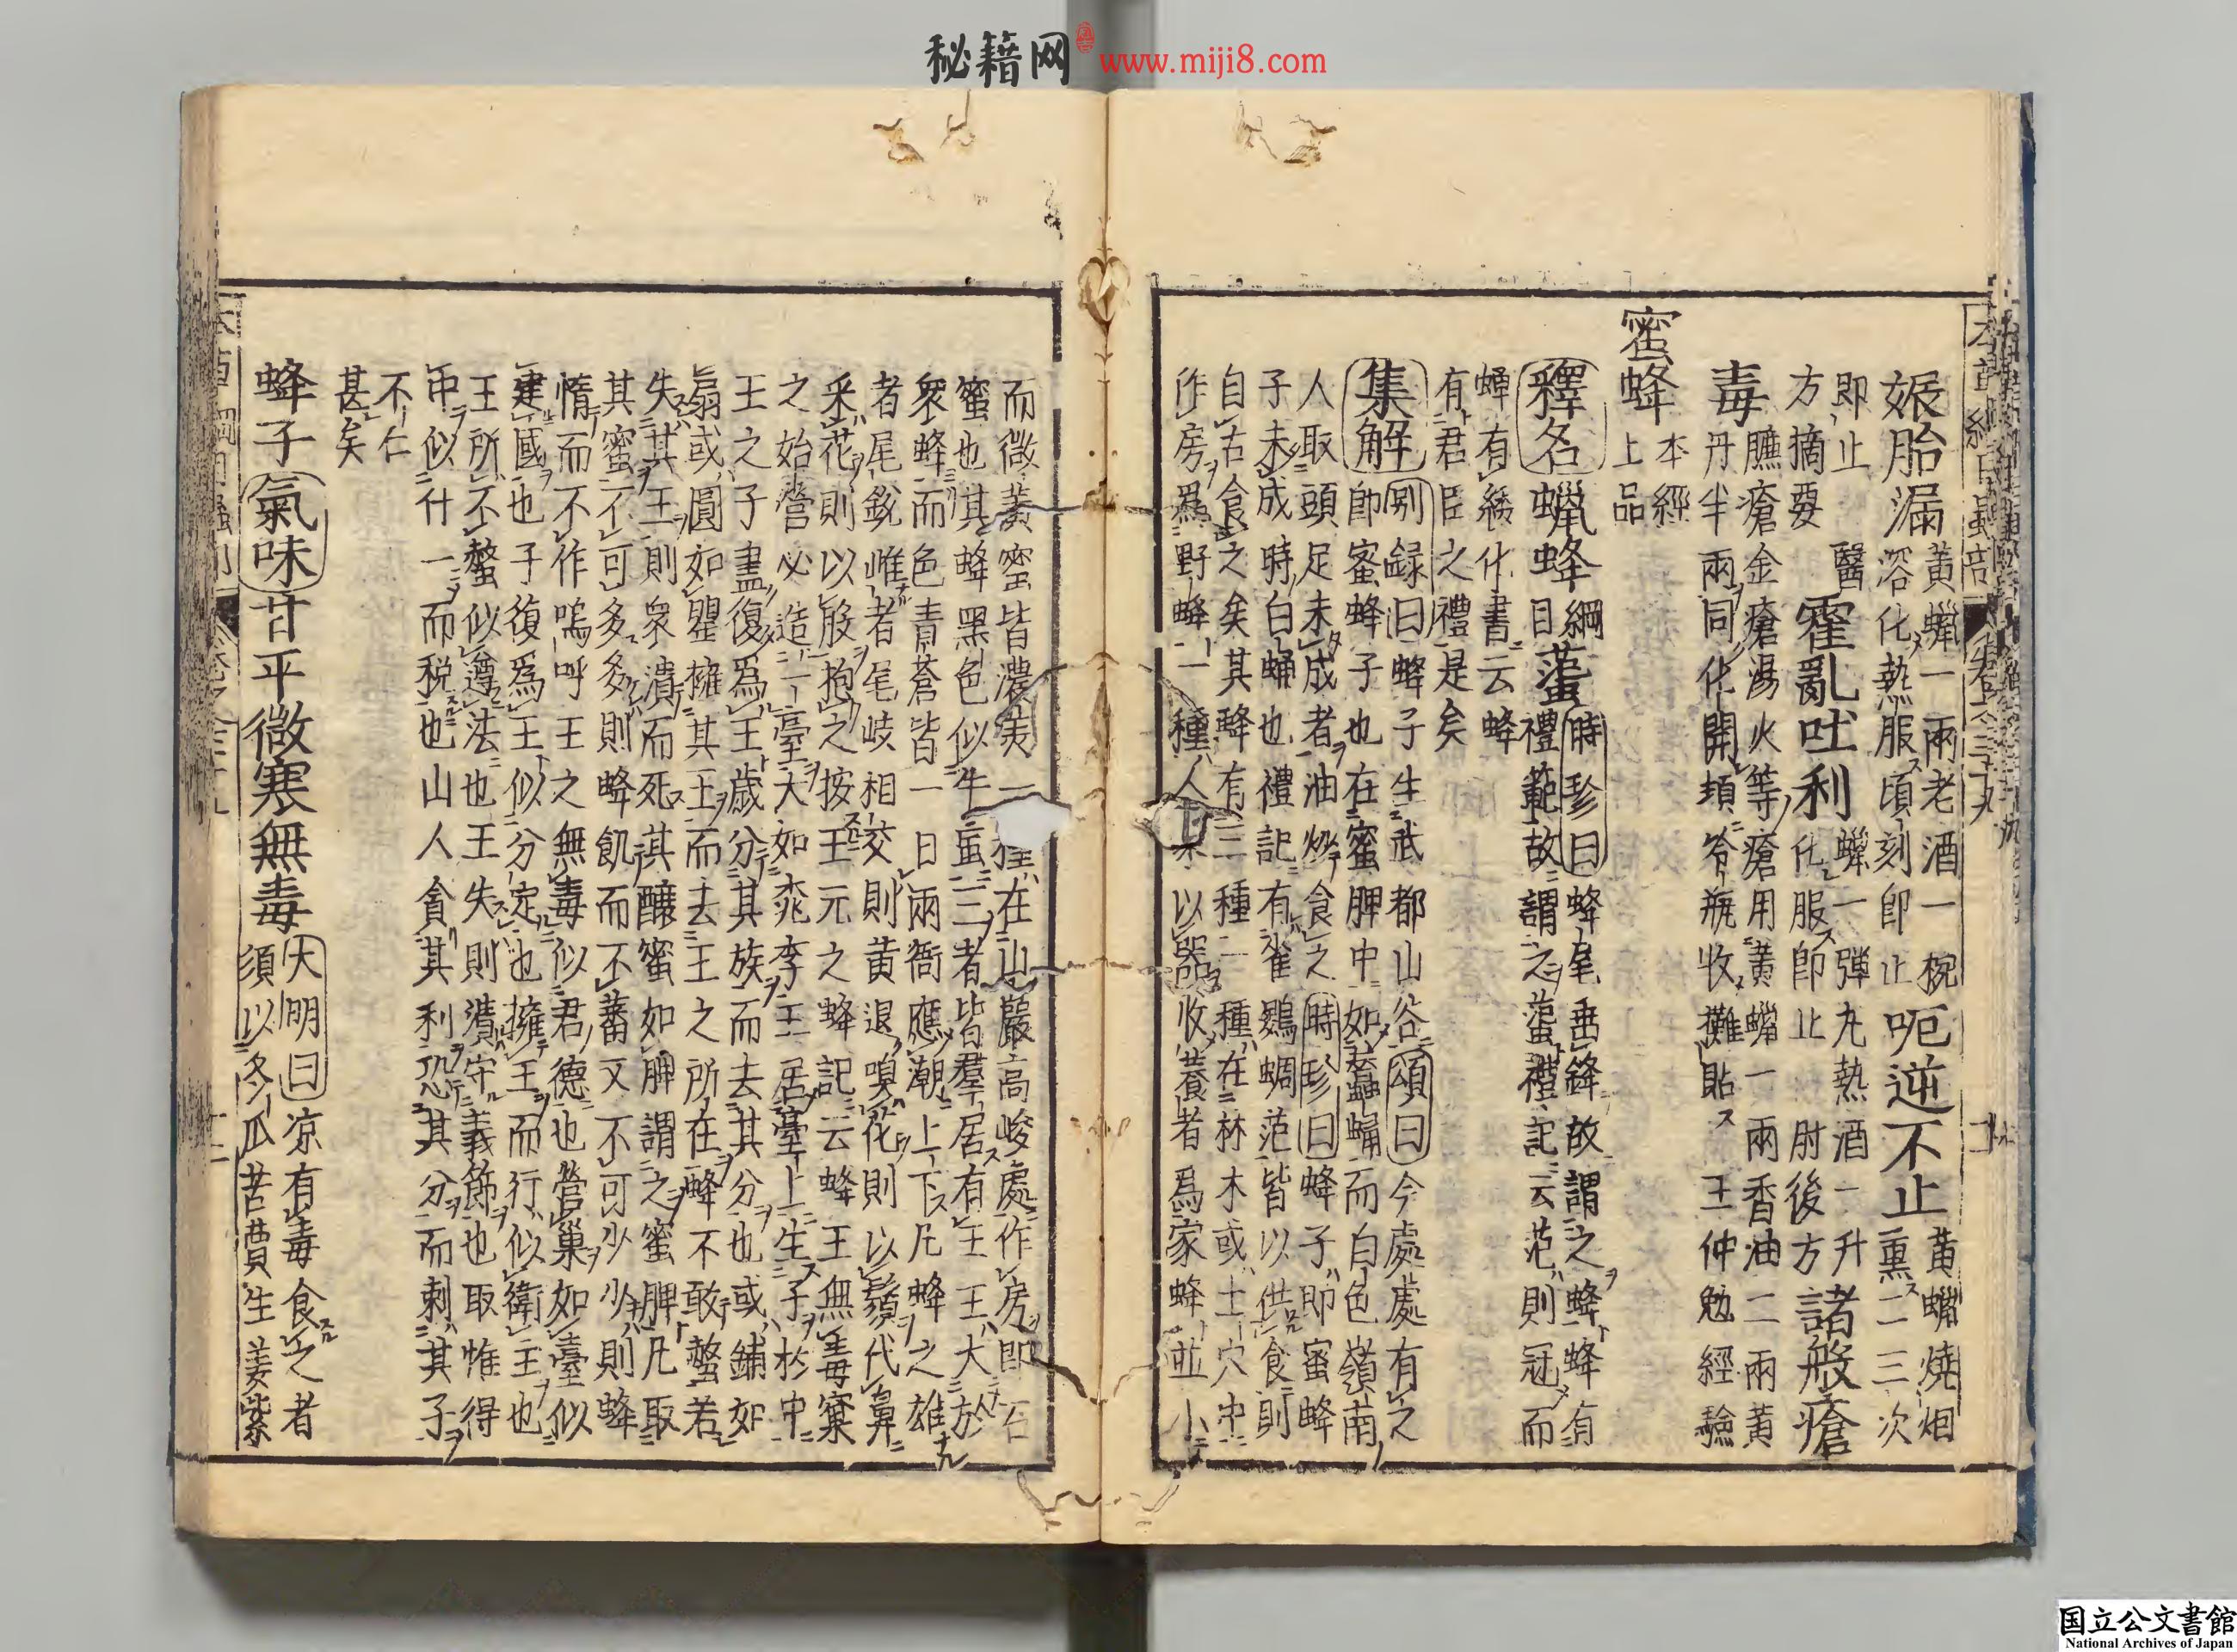 秘籍网 www.miji8.com
娠胎漏 黃蠟一兩老酒一椀
溶化熱服頃刻卽止 呃逆不止 黃蠟燒烟
熏二三次
卽止 醫
方摘要 霍亂吐利 蠟一彈丸熱酒一升
化服卽止 肘後方 諸般瘡
毒 臁瘡金瘡湯火等瘡用黃蠟一兩香油二兩黃
丹半兩同化開頓冷瓶收攤貼 王仲勉經驗
蜜蜂 本經
上品
釋名 蠟蜂 綱
目 蠭 時珍曰蜂尾垂鋒故謂之蜂蜂有
禮範故謂之蠭禮記云范則冠而
蟬有緌化書云蜂
有君臣之禮是矣
集解 別録曰蜂子生武都山谷頌曰今處處有之
卽蜜蜂子也在蜜脾中如蠶蛹而白色嶺南
人取頭足未成者油炒食之時珍曰蜂子卽蜜蜂
子未成時白蛹也禮記有雀鷃蜩范皆以供食則
自古食之矣其蜂有三種一種在林木或土穴中
作房爲野蜂一種人家以器收養者爲家蜂並小
而微黃蜜皆濃美一種在山巖高峻處作房卽石
蜜也其蜂黑色似牛蝱三者皆羣居有王王大於
衆蜂而色青蒼皆一日兩衙應潮上下凡蜂之雄
者尾銳雌者尾岐相交則黃退嗅花則以鬚代鼻
釆花則以股抱之按王元之蜂記云蜂王無毒窠
之始營必造一臺大如桃李王居臺上生子於中
王之子盡復爲王歲分其族而去其分也或鋪如
扇或圓如罌擁其王而去王之所在蜂不敢螫若
失其王則衆潰而死其釀蜜如脾謂之蜜脾凡取
其蜜不可多多則蜂飢而不蕃又不可少少則蜂
惰而不作嗚呼王之無毒似君德也營巢如臺似
建國也子復爲王似分定也擁王而行似衛王也
王所不螫似遵法也王失則潰守義節也取惟得
中似什一而税也山人貪其利恐其分而刺其子
不仁
甚矣
蜂子 氣味 甘平微寒無毒 大明曰凉有毒食之者
須以冬瓜苦賈生姜紫
国立公文書館
National Archives of Japan